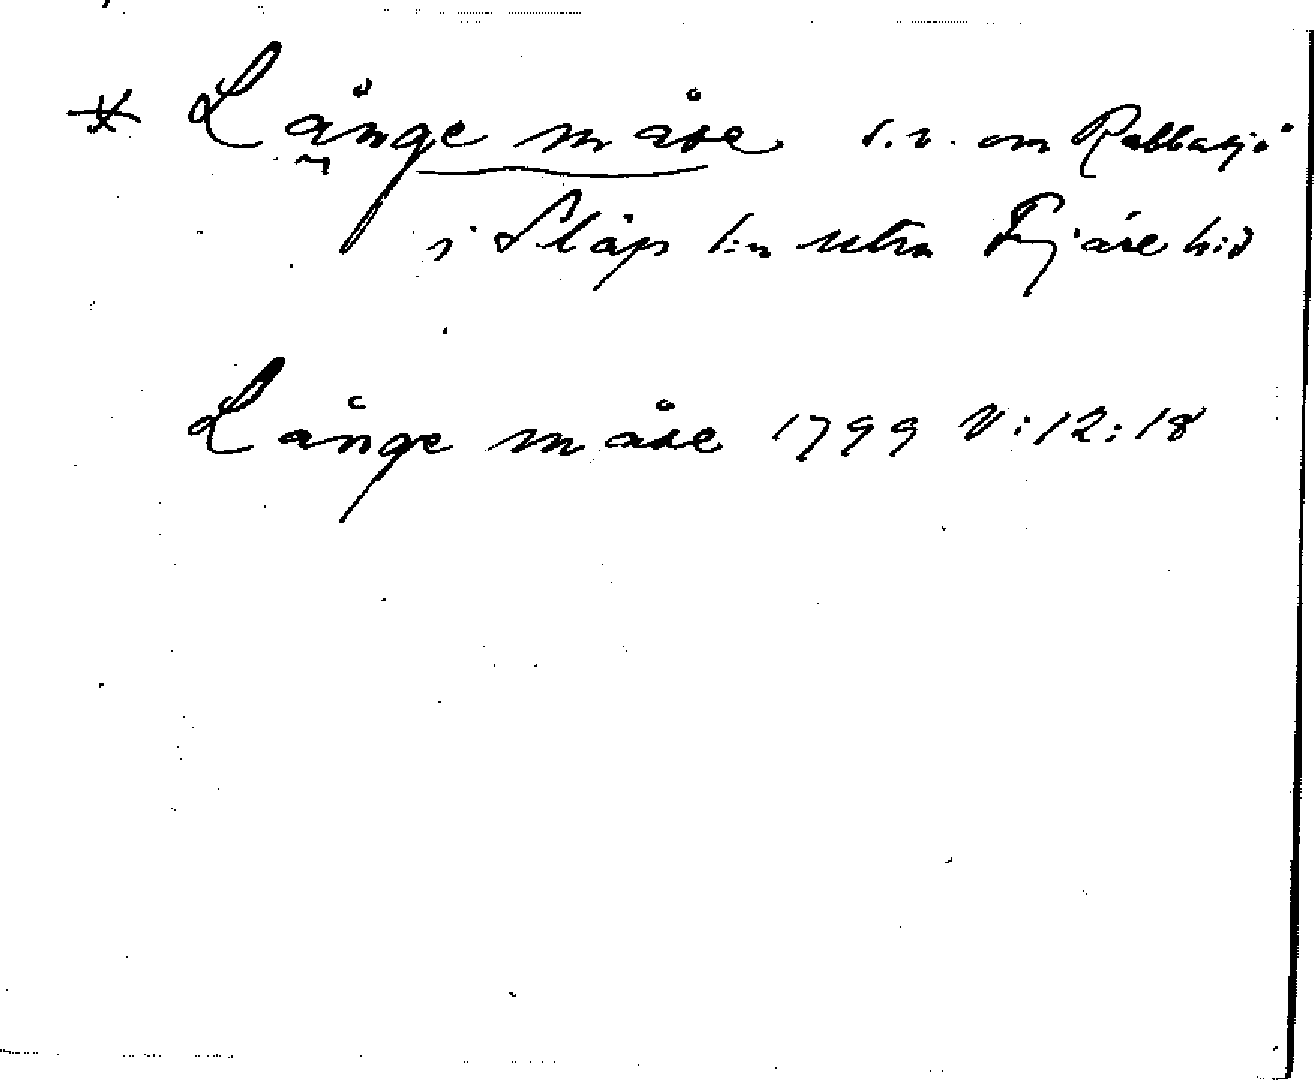 * Långe måse s.v. om Rabbasjö
i Släp s:n utm Fjäre hd
Långe måse 1799 V:12:18